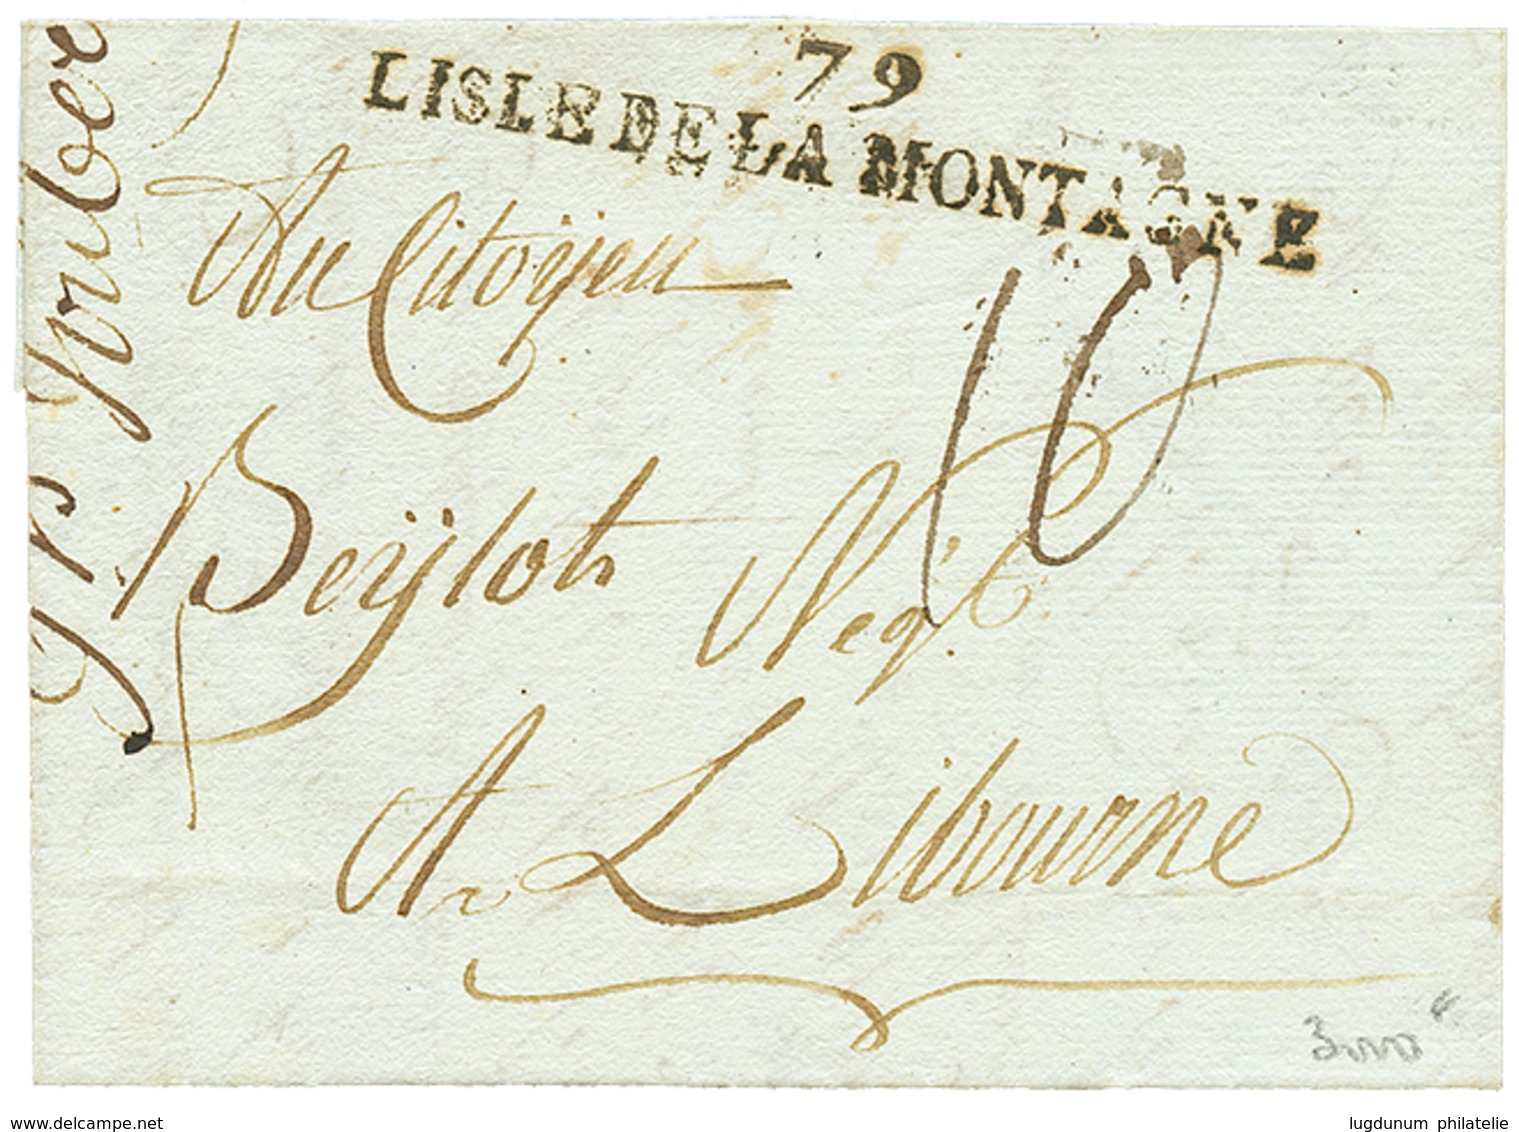 79
LISLE DE LA MONTAGNE
Au Citoyen
10
Beÿlot Negt
A Libourne
www.delcampe.net
lugdunum philatelie